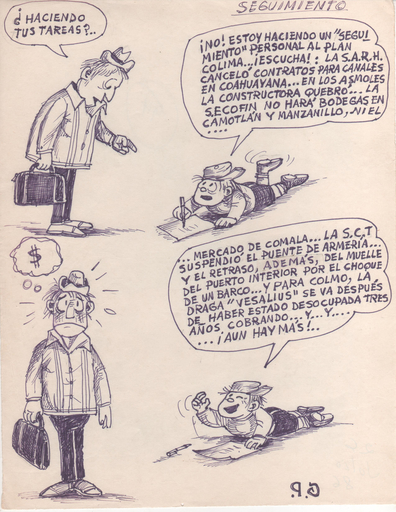 SEGUIMIENTO
¿HACIENDO
TUS TAREAS?..
¡NO! ESTOY HACIENDO UN "SEGUI
MIENTO" PERSONAL AL PLAN
COLIMA...¡ESCUCHA!: LA S.A.R.H.
CANCELO CONTRATOS PARA CANALES
EN COAHUAYANA... EN LOS ASMOLES
LA CONSTRUCTORA QUEBRO... LA
SECOFIN NO HARA BODEGAS EN
CAMOTLAN Y MANZANILLO, NI EL
....
$
... MERCADO DE COMALA... LA S.C.T
SUSPENDIO EL PUENTE DE ARMERIA...
Y EL RETRASO, ADEMAS, DEL MUELLE
DEL PUERTO INTERIOR POR EL CHOQUE
DE UN BARCO... Y PARA COLMO, LA
DRAGA "VESALIUS" SE VA DESPUES
DE HABER ESTADO DESOCUPADA TRES
AÑOS, COBRANDO... Y... Y....
....¡AUN HAY MAS!..